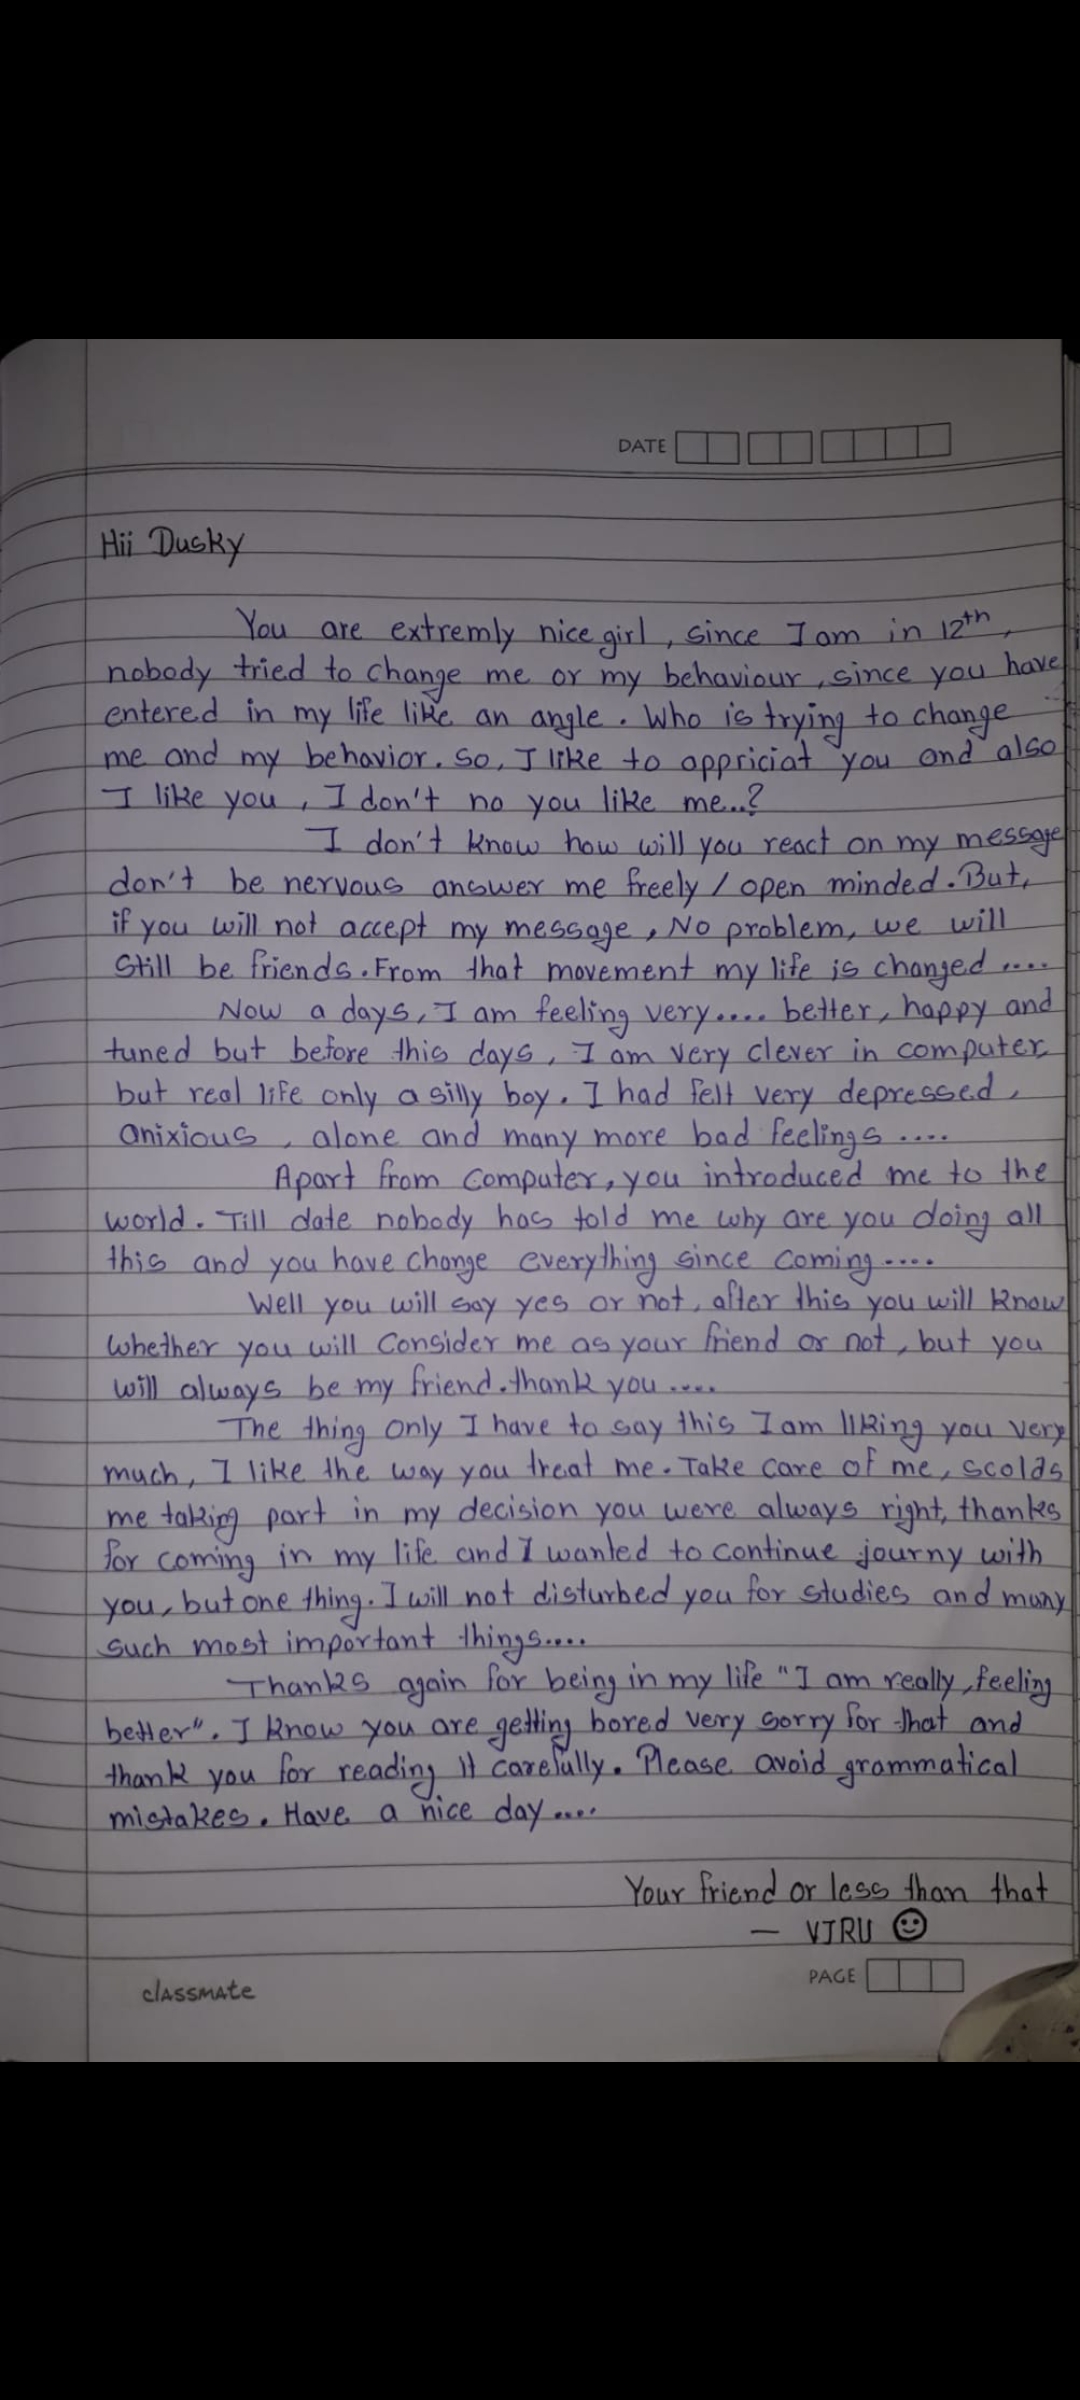 DATE
Hii Dusky
You are extremly nice girl, since I am in 12th,
nobody tried to change me or my behaviour, since you have
entered in my life like an angle. Who is trying to change
me and my behavior. So, I like to appriciat you and also
I like you, I don't no you like me...?
I don't know how will you react on my message
don't be nervous answer me freely / open minded. But,
if you will not accept my message, No problem, we will
Still be friends. From that movement my life is changed ....
Now a days, I am feeling very.... better, happy and
tuned but before this days, I am very clever in computer,
but real life only a silly boy. I had felt very depressed,
anixious, alone and many more bad feelings ....
Apart from computer, you introduced me to the
world. Till date nobody has told me why are you doing all
this and you have change everything since coming ....
Well you will say yes or not, after this you will know
whether you will Consider me as your friend or not, but you
will always be my friend. thank you ....
The thing only I have to say this I am liking you very
much, I like the way you treat me. Take care of me, scolds
me taking part in my decision you were always right, thanks
for coming in my life and I wanted to continue journy with
you, but one thing. I will not disturbed you for studies and many
such most important things....
Thanks again for being in my life "I am really, feeling
better". I know you are getting bored very sorry for that and
thank you for reading it carefully. Please avoid grammatical
mistakes. Have a nice day ....
Your friend or less than that
— VIRU
classmate
PAGE